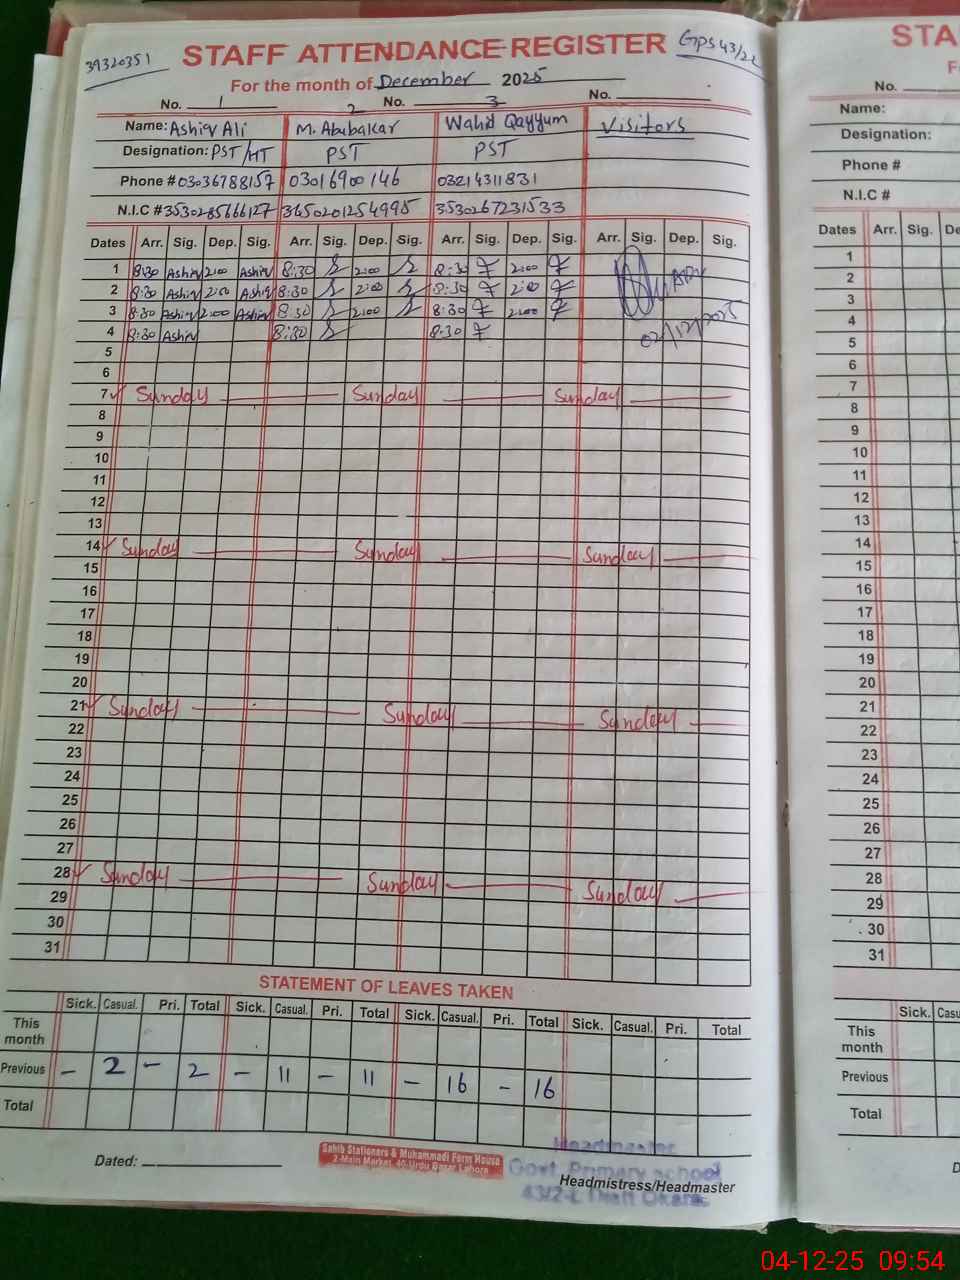 39320351 STAFF ATTENDANCE REGISTER GPS 43/2L
For the month of December 2025
No. 1 2 No. 3 No.
Name: Ashiq Ali M. Abubakar Wahid Qayyum Visitors
Designation: PST/HT PST PST
Phone # 03036788157 03016900146 03214311831
N.I.C # 3530285666127 3650201254995 3530267231533
Dates Arr. Sig. Dep. Sig. Arr. Sig. Dep. Sig. Arr. Sig. Dep. Sig. Arr. Sig. Dep. Sig.
1 8:30 Ashiq 2:00 Ashiq 8:30 2:00 8:30 2:00
2 8:30 Ashiq 2:00 Ashiq 8:30 2:00 8:30 2:00
3 8:30 Ashiq 2:00 Ashiq 8:30 2:00 8:30 2:00
4 8:30 Ashiq 8:30 8:30 02/12/2025
5
6
7 Sunday Sunday Sunday
8
9
10
11
12
13
14 Sunday Sunday Sunday
15
16
17
18
19
20
21 Sunday Sunday Sunday
22
23
24
25
26
27
28 Sunday Sunday Sunday
29
30
31
STATEMENT OF LEAVES TAKEN
Sick. Casual. Pri. Total Sick. Casual. Pri. Total Sick. Casual. Pri. Total Sick. Casual. Pri. Total
This month
Previous – 2 – 2 – 11 – 11 – 16 – 16
Total
Dated:
Sahib Stationers & Muhammadi Form House
2-Main Market, 40-Urdu Bazar Lahore
Headmaster
Govt. Primary School
43/2-L Okara
Headmistress/Headmaster
STA
F
No.
Name:
Designation:
Phone #
N.I.C #
Dates Arr. Sig. De
1
2
3
4
5
6
7
8
9
10
11
12
13
14
15
16
17
18
19
20
21
22
23
24
25
26
27
28
29
30
31
Sick. Casu
This month
Previous
Total
D
04-12-25 09:54